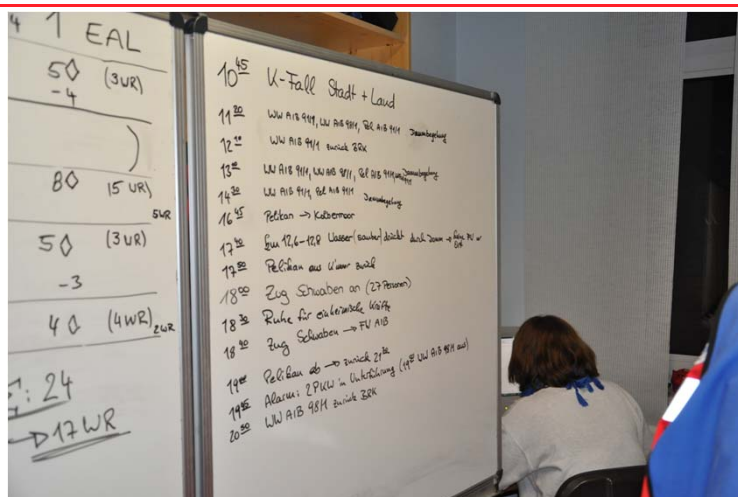 1 EAL
5◊ (3UR)
-4
8◊ (5UR)
5WR
5◊ (3UR)
-3
4◊ (4WR) 2WR
: 24
→ 17WR
10 45 K-Fall Stadt + Land
11 20 WW AIB 91/1, WW AIB 98/1, Pel AIB 91/1 Dammbegehung
12 WW AIB 91/1 zurück BRK
13 WW AIB 91/1, WW AIB 98/1, Pel AIB 91/1 Dammbegehung
14 30 WW AIB 91/1, Pel AIB 91/1 Dammbegehung
16 45 Pelikan → Kolbermoor
17 40 Fkm 12,6-12,8 Wasser (sauber) drückt durch Damm →
17 50 Pelikan aus zurück
18 00 Zug Schwaben an (27 Personen)
18 30 Ruhe für einheimische Kräfte
18 40 Zug Schwaben → FV AIB
19 00 Pelikan ab → zurück 21
19 45 Alarm: 2 PKW in Unterführung (19 WW AIB 98/1 aus)
20 50 WW AIB 98/1 zurück BRK